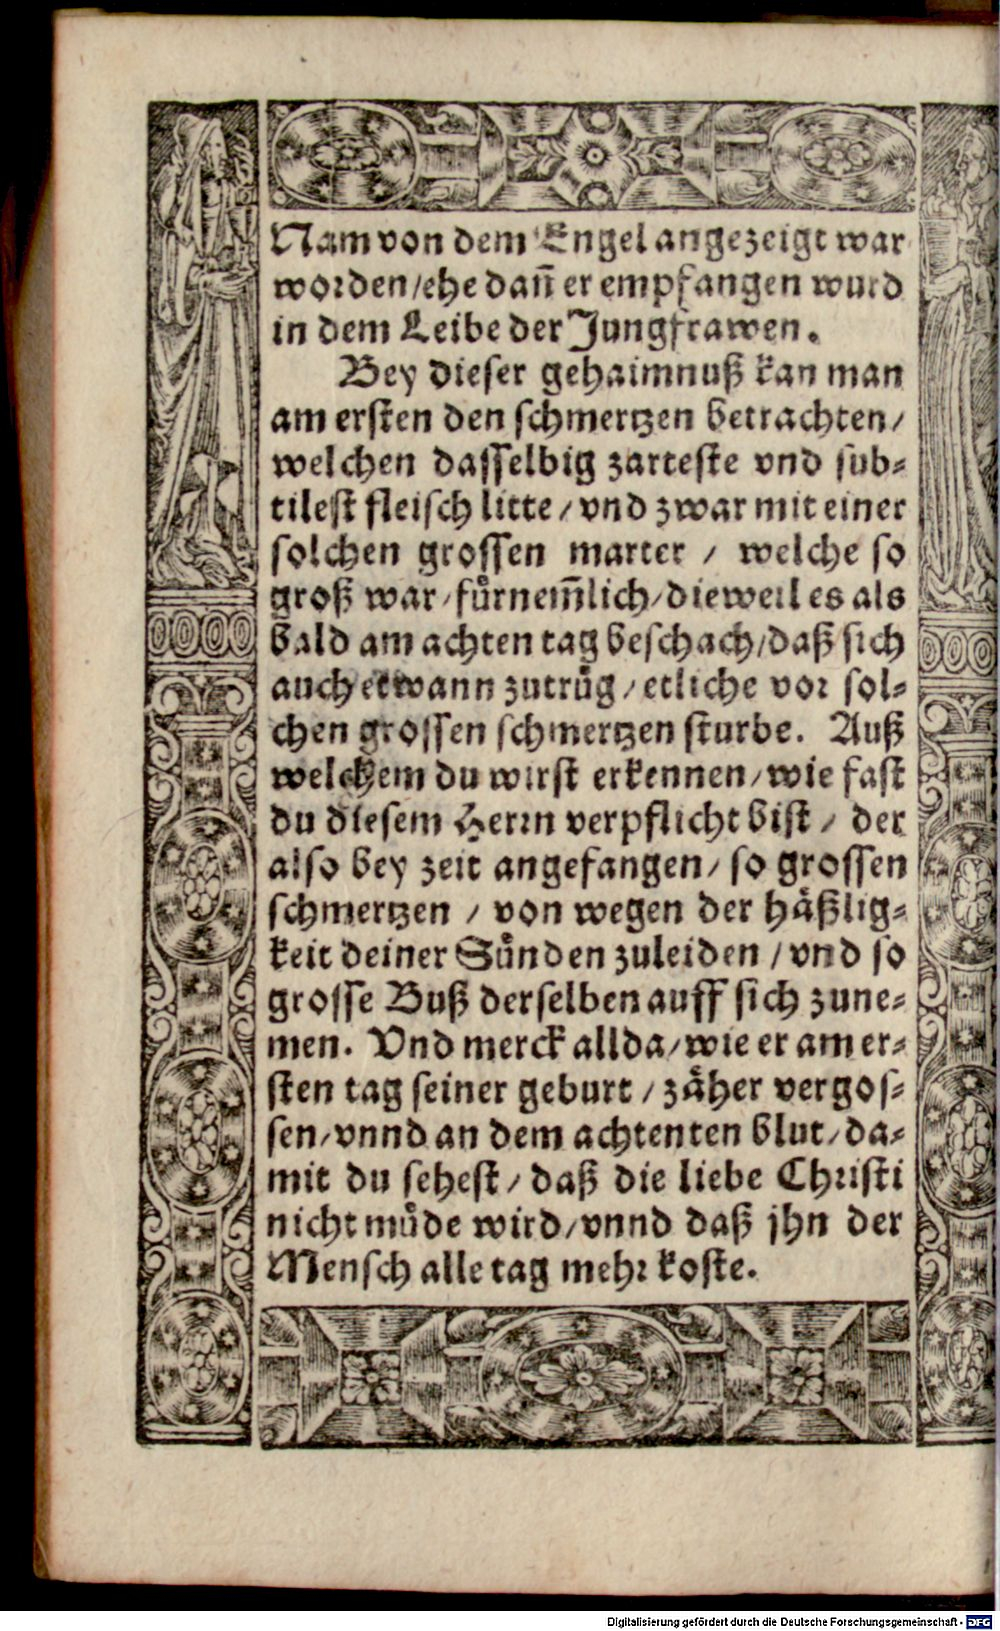 Nam von dem Engel angezeigt war
worden/ehe dañ er empfangen wurd
in dem Leibe der Jungfrawen.
Bey dieser gehaimnuß kan man
am ersten den schmertzen betrachten/
welchen dasselbig zarteste vnd sub-
tilest fleisch litte/vnd zwar mit einer
solchen grossen marter / welche so
groß war/fuͤrnem̃lich/dieweil es als
bald am achten tag beschach/daß sich
auch etwann zutruͤg/etliche vor sol-
chen grossen schmertzen sturbe. Auß
welchem du wirst erkennen/wie fast
du diesem Herrn verpflicht bist / der
also bey zeit angefangen/so grossen
schmertzen / von wegen der haͤßlig-
keit deiner Suͤnden zuleiden/vnd so
grosse Buß derselben auff sich zune-
men. Vnd merck allda/wie er am er-
sten tag seiner geburt/zaͤher vergos-
sen/vnnd an dem achtenten blut/da-
mit du sehest/daß die liebe Christi
nicht muͤde wird/vnnd daß jhn der
Mensch alle tag mehr koste.
Digitalisierung gefördert durch die Deutsche Forschungsgemeinschaft - DFG